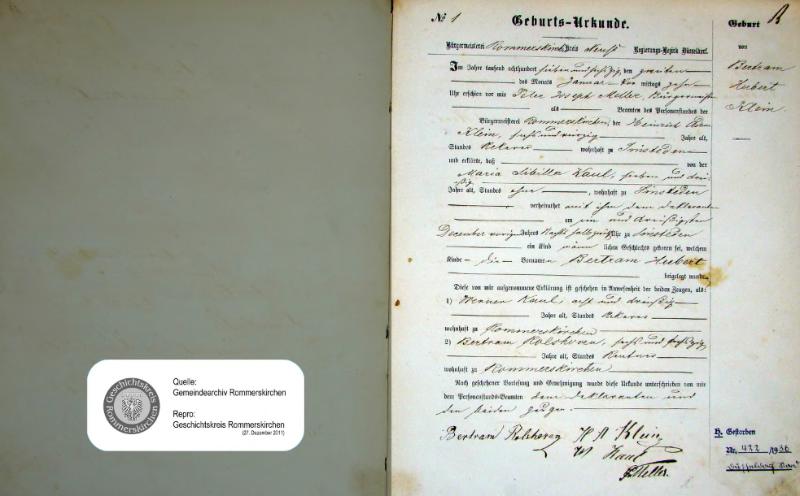 Geschichtskreis
Rommerskirchen
Quelle:
Gemeindearchiv Rommerskirchen
Repro:
Geschichtskreis Rommerskirchen
(27. Dezember 2011)
№ 1
Geburts-Urkunde.
Bürgermeisterei Rommerskirchen Kreis Neuß Regierungs-Bezirk Düsseldorf.
Im Jahre tausend achthundert sieben und sechszig, den zweiten
des Monats Januar Vor mittags zehn
Uhr erschien vor mir Peter Joseph Meller, Bürgermeister
als Beamten des Personenstandes der
Bürgermeisterei Rommerskirchen, der Heinrich Adam
Klein, sechs und vierzig Jahre alt,
Standes Ackerer wohnhaft zu Sinsteden
und erklärte, daß von der
Maria Sibilla Kaul, sieben und drei-
ßig
Jahre alt, Standes ohne, wohnhaft zu Sinsteden
verheirathet mit ihm dem Deklaranten
am ein und dreißigsten
December vorigen Jahres Nachts halb Uhr zu Sinsteden
ein Kind männlichen Geschlechts geboren sei, welchem
Kinde die Vornamen Bertram Hubert
beigelegt wurde
Diese von mir aufgenommene Erklärung ist geschehen in Anwesenheit der beiden Zeugen, als:
1) Werner Kaul, acht und dreißig
Jahre alt, Standes Ackerer
wohnhaft zu Rommerskirchen
2) Bertram Rolshoven, sechs und sechszig
Jahre alt, Standes Rentner
wohnhaft zu Rommerskirchen
Nach geschehener Vorlesung und Genehmigung wurde diese Urkunde unterschrieben von mir
dem Personenstands-Beamten dem Deklaranten und
den beiden Zeugen.
Bertram H A Klein
W Kaul
Meller.
Geburt
von
Bertram
Hubert
Klein
H. Gestorben
Nr. 422 /1936